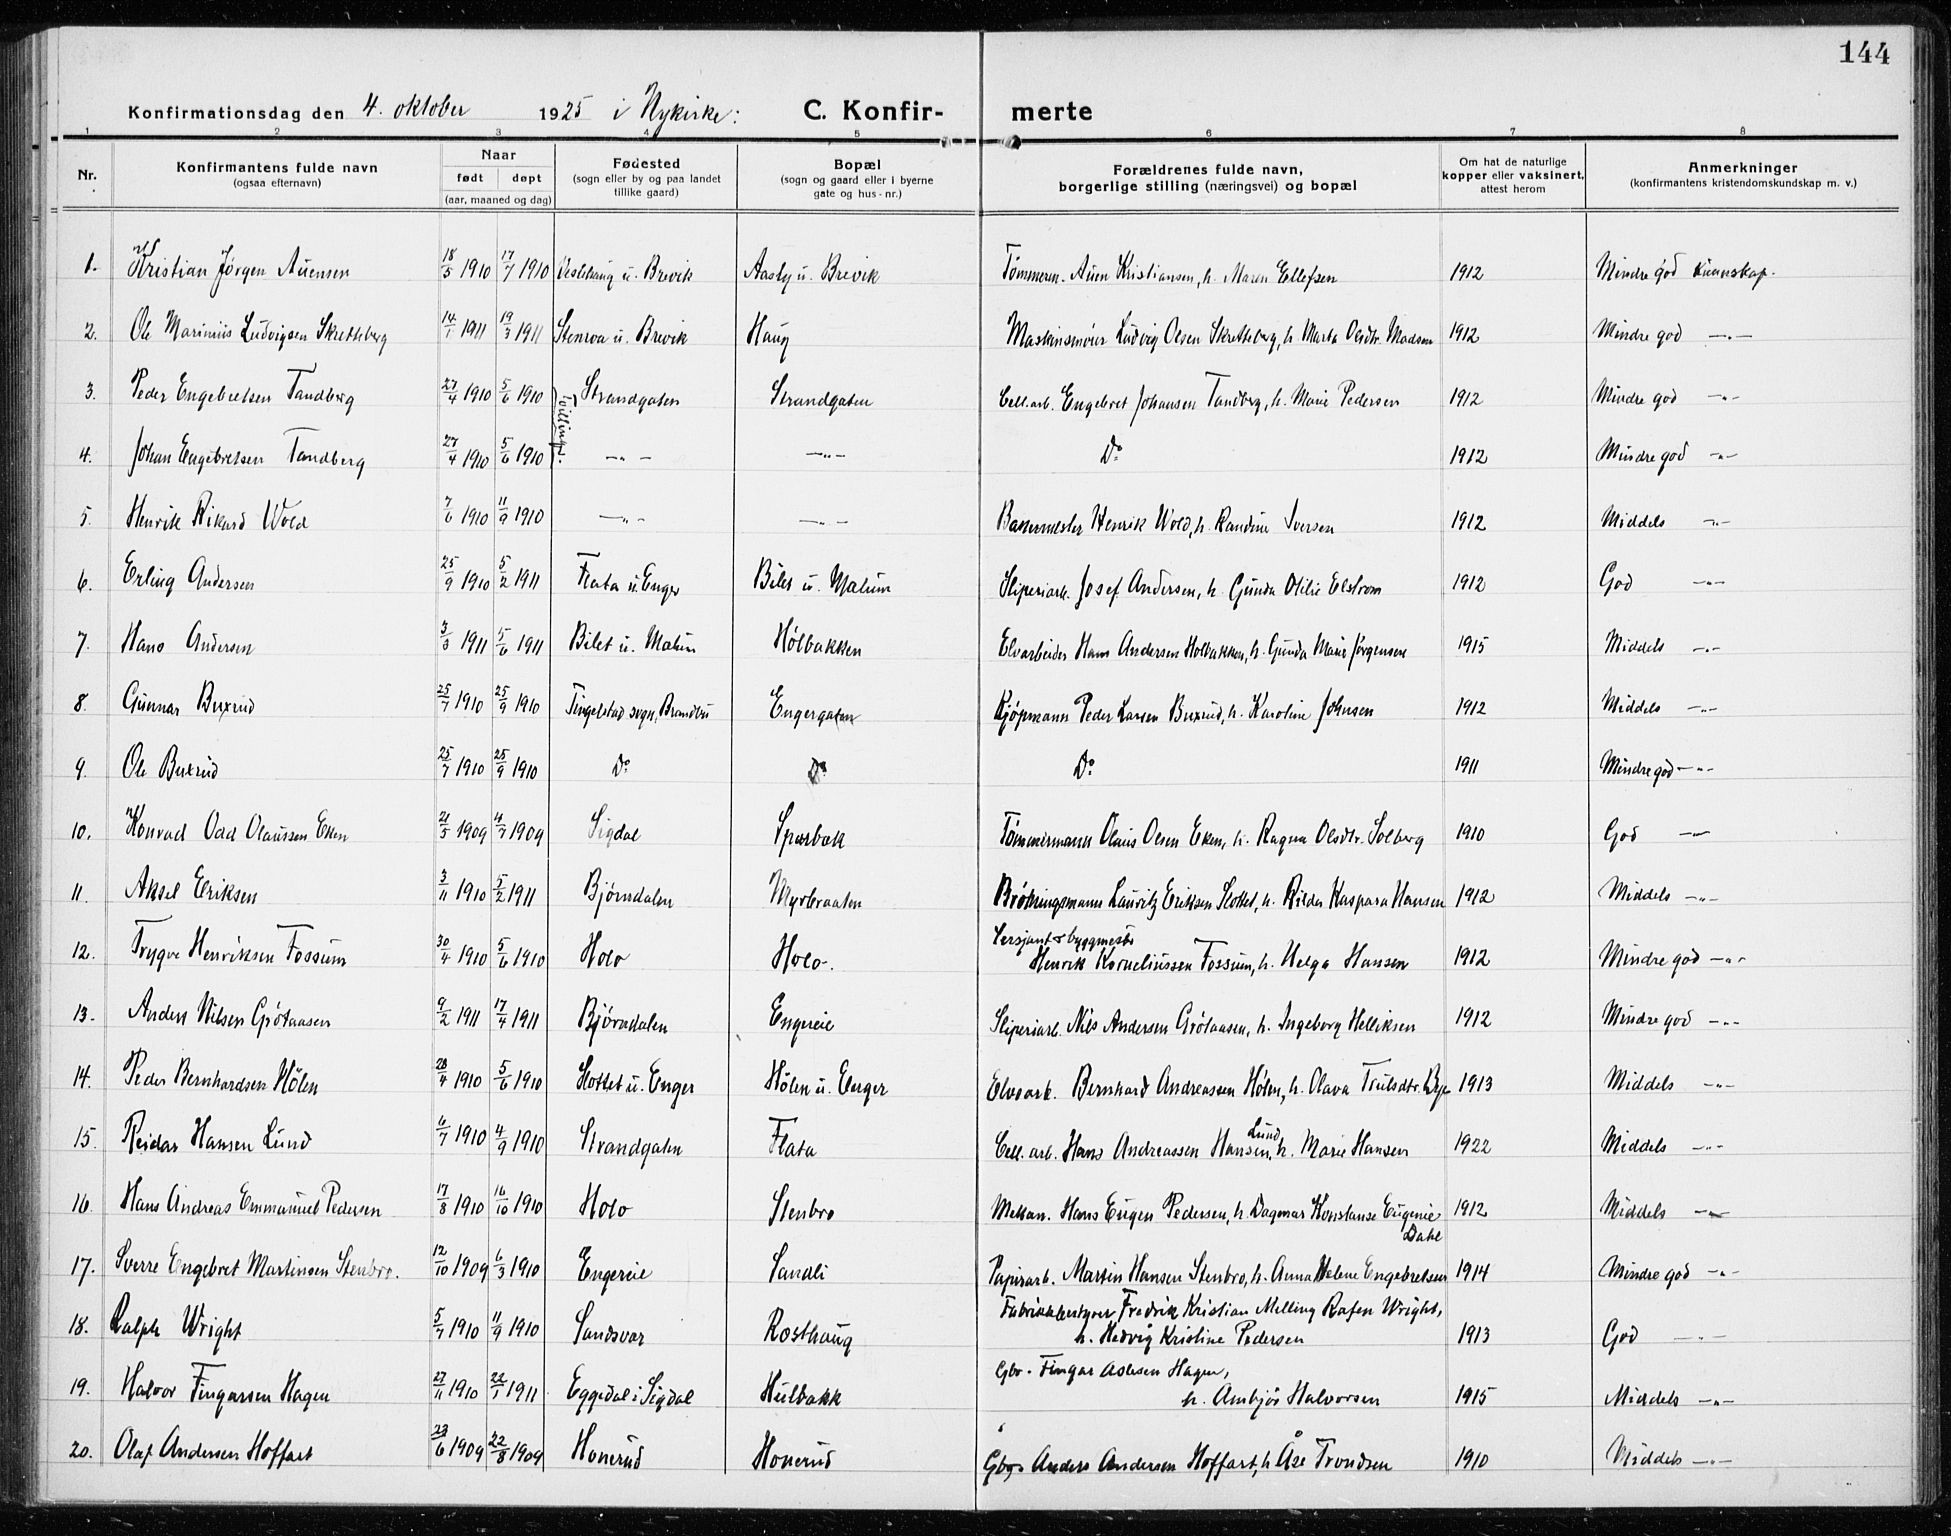 144
Konfirmationsdag den 4. oktober 1925 i Nykirke: C. Konfir- merte
1 2 3 4 5 6 7 8
Nr. Konfirmantens fulde navn (ogsaa efternavn) Naar født døpt (aar, maaned og dag) Fødested (sogn eller by og paa landet tillike gaard) Bopæl (sogn og gaard eller i byerne gate og hus-nr.) Forældrenes fulde navn, borgerlige stilling (næringsvei) og bopæl Om hat de naturlige kopper eller vaksinert, attest herom Anmerkninger (konfirmantens kristendomskundskap m. v.)
1. Kristian Jørgen Auensen 18/5 1910 17/7 1910 Veslehaug u. Brevik Aasly u. Brevik Tømmerm. Auen Kristiansen, h. Maren Ellefsen 1912 Mindre god kunnskap.
2. Ole Marinius Ludvigsen Skretteberg 14/1 1911 19/3 1911 Stenroa u. Brevik Haug Maskinsmører Ludvig Olsen Skretteberg, h. Marta Olsdtr. Madsen 1912 Mindre god —"—
3. Peder Engebretsen Tandberg 27/4 1910 5/6 1910 Tvillinger. Strandgaten Strandgaten Cell.arb. Engebret Johansen Tandberg, h. Marie Pedersen 1912 Mindre god —"—
4. Johan Engebretsen Tandberg 27/4 1910 5/6 1910 —"— —"— Do 1912 Mindre god —"—
5. Henrik Rikard Wold 7/6 1910 11/9 1910 —"— —"— Bakermester Henrik Wold, h. Randine Iversen 1912 Middels —"—
6. Erling Andersen 25/9 1910 5/2 1911 Flata u. Enger Bilet u. Mælum Sliperiarb. Josef Andersen, h. Gunda Otilie Elstrøm 1912 God —"—
7. Hans Andersen 3/3 1911 5/6 1911 Bilet u. Mælum Hølbakken Elvarbeider Hans Andersen Hølbakken, h. Gunda Marie Jørgensen 1915 Middels —"—
8. Gunnar Buxrud 25/7 1910 25/9 1910 Tingelstad sogn, Brandbu Engergaten Kjøpmann Peder Larsen Buxrud, h. Karoline Johnsen 1912 Middels —"—
9. Ole Buxrud 25/7 1910 25/9 1910 Do Do Do 1911 Mindre god —"—
10. Konrad Odd Olaussen Eken 21/5 1909 4/7 1909 Sigdal Spærbak Tømmermann Olaus Olsen Eken, h. Ragna Olsdtr. Solberg 1910 God —"—
11. Aksel Eriksen 3/11 1910 5/2 1911 Bjørndalen Myrbraaten Brøtningsmann Lauritz Eriksen Slottet, h. Rilda Kaspara Hansen 1912 Middels —"—
12. Trygve Henriksen Fossum 30/4 1910 5/6 1910 Holo Holo. Sersjant & byggmester
Henrik Korneliussen Fossum, h. Helga Hansen 1912 Mindre god —"—
13. Anders Nilsen Grøtaasen 9/2 1911 17/4 1911 Bjørndalen Engereie Sliperiarb. Nils Andersen Grøtaasen, h. Ingeborg Helliksen 1912 Mindre god —"—
14. Peder Bernhardsen Hølen 28/4 1910 5/6 1910 Slottet u. Enger Hølen u. Enger Elvearb. Bernhard Andreassen Hølen, h. Olava Trulsdtr. Bye 1913 Middels —"—
15. Reidar Hansen Lund 6/7 1910 4/9 1910 Strandgaten Flata Cell. arb. Hans Andreassen Hansen Lund, h. Marie Hansen 1922 Middels —"—
16. Hans Andreas Emmanuel Pedersen 17/8 1910 16/10 1910 Holo Stenbro Mekan. Hans Eugen Pedersen, h. Dagmar Konstanse Eugenie Dahl 1912 Middels —"—
17. Sverre Engebret Martinsen Stenbro. 12/10 1909 6/3 1910 Engereie Sandli Papirarb. Martin Hansen Stenbro, h. Anna Helene Engebretsen 1914 Mindre god —"—
18. Ralph Wright 5/7 1910 11/9 1910 Sandsvær Rosthaug Fabrikkbestyrer Fredrik Kristian Melling Rafen Wright,
h. Hedvig Kristine Pedersen 1913 God —"—
19. Halvor Fingarsen Hagen 27/11 1910 22/1 1911 Eggedal i Sigdal Hulbakk Gbr. Fingar Aslesen Hagen,
h. Ambjør Halvorsen 1915 Middels —"—
20. Olaf Andersen Hoffart 23/6 1909 22/8 1909 Honerud Honerud Gbr. Anders Andersen Hoffart, h. Åse Trondsen 1910 Middels —"—